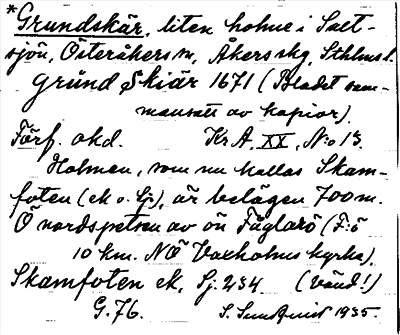 *Grundskär, liten holme i Salt-
sjön, Österåkers sn, Åkers skg, Sthlms l.
Gründ Skiär 1671 (Bladet sam-
mansatt av kopior).
Förf. okd. Kr.A. XX, N:o 13.
Holmen, som nu kallas Skam-
foten (ek o. Sj), är belägen 700 m.
Ö nordspetsen av ön Fåglarö (F:ö
10 km. NÖ Vaxholms kyrka).
Skamfoten ek, Sj. 234. (vänd!)
G. 76. S. Sundquist 1935.